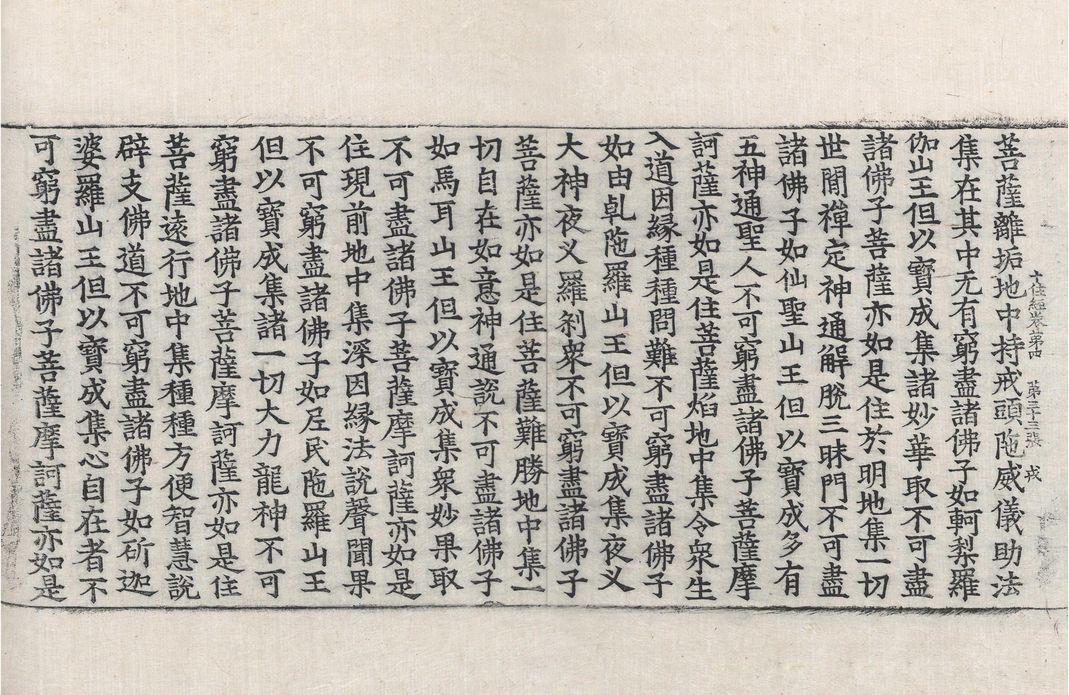 十住經卷第四 第三十三張 戎
菩薩離垢地中持戒頭陁威儀助法
集在其中无有窮盡諸佛子如軻梨羅
伽山王但以寶成集諸妙華取不可盡
諸佛子菩薩亦如是住於明地集一切
世閒禪定神通解脫三昧門不可盡
諸佛子如仙聖山王但以寶成多有
五神通聖人不可窮盡諸佛子菩薩摩
訶薩亦如是住菩薩焰地中集令衆生
入道因縁種種問難不可窮盡諸佛子
如由乹陁羅山王但以寶成集夜义
大神夜义羅剎衆不可窮盡諸佛子
菩薩亦如是住菩薩難勝地中集一
切自在如意神通說不可盡諸佛子
如馬耳山王但以寶成集衆妙果取
不可盡諸佛子菩薩摩訶薩亦如是
住現前地中集深因縁法說聲聞果
不可窮盡諸佛子如尼民陁羅山王
但以寶成集諸一切大力龍神不可
窮盡諸佛子菩薩摩訶薩亦如是住
菩薩遠行地中集種種方便智慧說
辟支佛道不可窮盡諸佛子如斫迦
婆羅山王但以寶成集心自在者不
可窮盡諸佛子菩薩摩訶薩亦如是